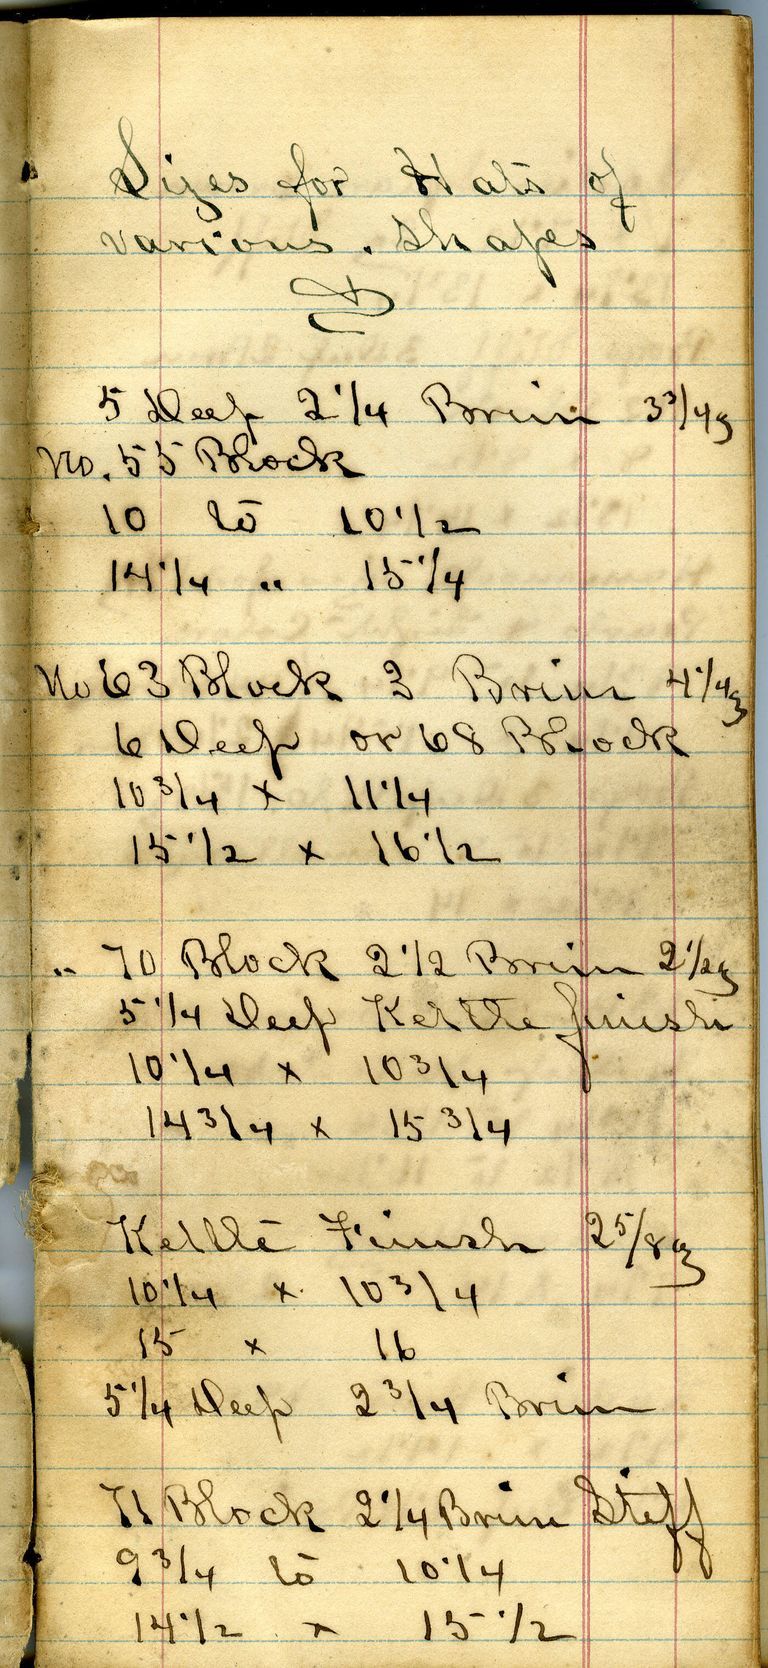 Sizes for Hats of
various. Shapes
5 Deep 2 1/4 Brim 3 3/4 oz
No. 55 Block
10 to 10 1/2
14 1/4 " 15 1/4
No 63 Block 3 Brim 4 1/4 oz
6 Deep or 68 Block
10 3/4 x 11 1/4
15 1/2 x 16 1/2
" 70 Block 2 1/2 Brim 2 1/2 oz
5 1/4 Deep Kettle finish
10 1/4 x 10 3/4
14 3/4 x 15 3/4
Kettle Finish 2 5/8 oz
10 1/4 x 10 3/4
15 x 16
5 1/4 Deep 2 3/4 Brim
71 Block 2 1/4 Brim Stiff
9 3/4 to 10 1/4
14 1/2 x 15 1/2